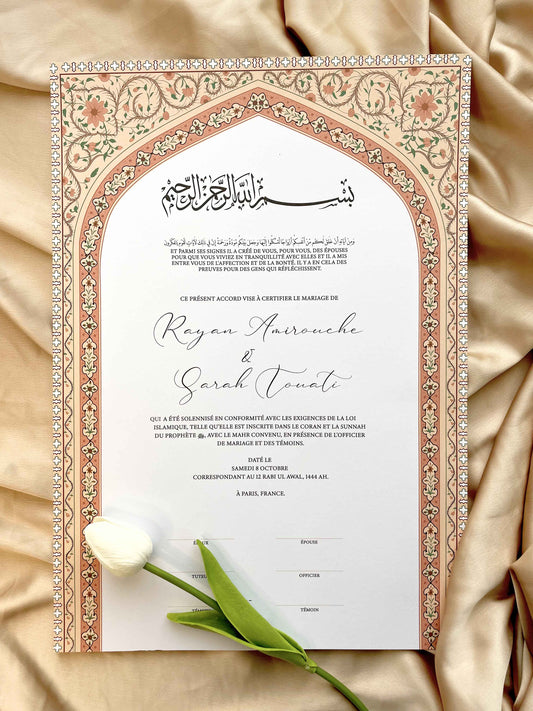 بسم الله الرحمن الرحيم
ومن آياته أن خلق لكم من أنفسكم أزواجا لتسكنوا إليها وجعل بينكم مودة ورحمة إن في ذلك لآيات لقوم يتفكرون
ET PARMI SES SIGNES IL A CRÉÉ DE VOUS, POUR VOUS, DES ÉPOUSES
POUR QUE VOUS VIVIEZ EN TRANQUILLITÉ AVEC ELLES ET IL A MIS
ENTRE VOUS DE L'AFFECTION ET DE LA BONTÉ. IL Y A EN CELA DES
PREUVES POUR DES GENS QUI RÉFLÉCHISSENT.
CE PRÉSENT ACCORD VISE À CERTIFIER LE MARIAGE DE
Rayan Amirouche
&
Sarah Touati
QUI A ÉTÉ SOLENNISÉ EN CONFORMITÉ AVEC LES EXIGENCES DE LA LOI
ISLAMIQUE, TELLE QU'ELLE EST INSCRITE DANS LE CORAN ET LA SUNNAH
DU PROPHÈTE ﷺ, AVEC LE MAHR CONVENU, EN PRÉSENCE DE L'OFFICIER
DE MARIAGE ET DES TÉMOINS.
DATÉ LE
SAMEDI 8 OCTOBRE
CORRESPONDANT AU 12 RABI UL AWAL, 1444 AH.
À PARIS, FRANCE.
ÉPOUX ÉPOUSE
TUTEUR OFFICIER
TÉMOIN TÉMOIN